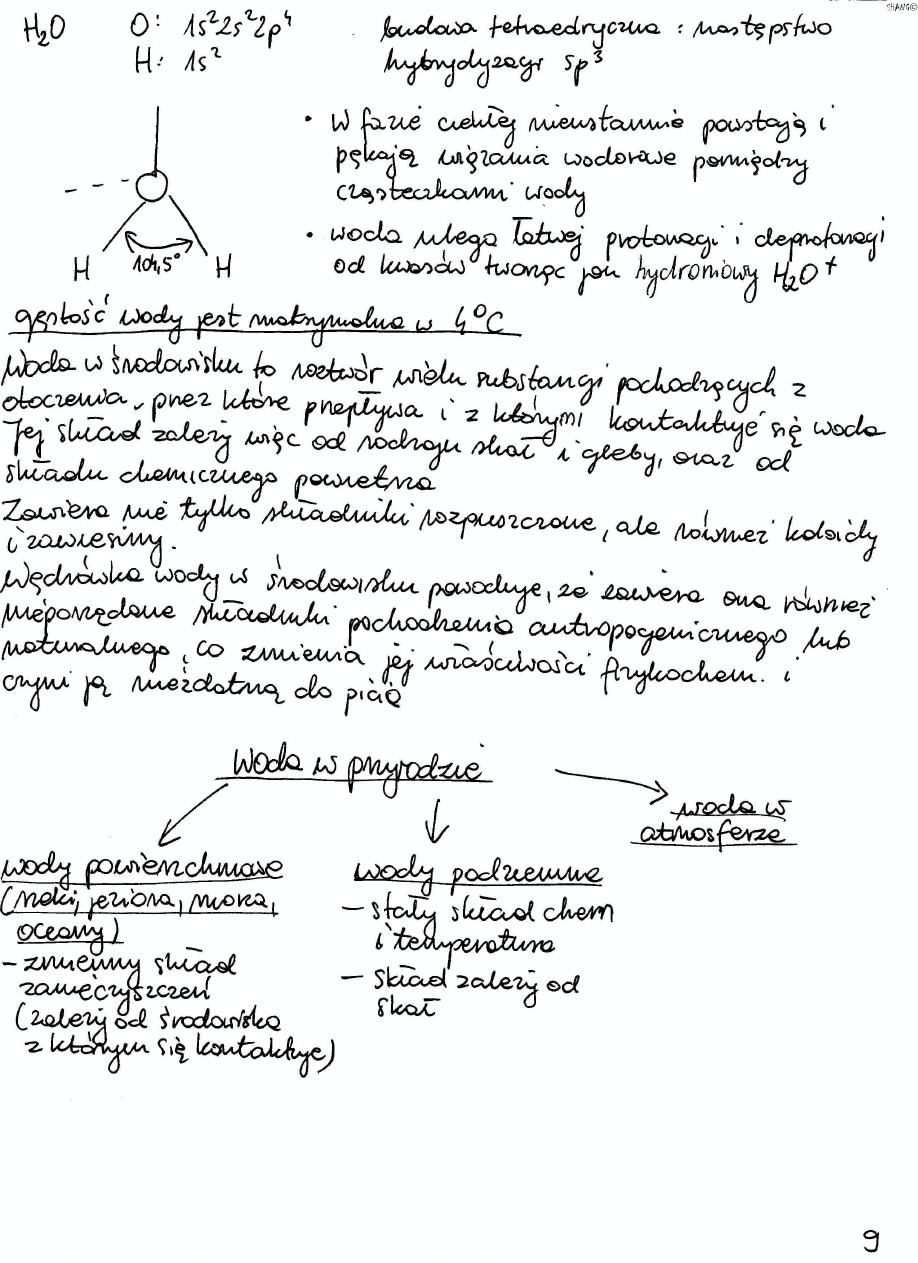 SHANG©
H₂O O: 1s²2s²2p⁴
H: 1s²
budowa tetraedryczna : następstwo
hybrydyzacji sp³
• W fazie ciekłej nieustannie powstają i
pękają wiązania wodorowe pomiędzy
cząsteczkami wody
• woda ulega łatwej protonacji i deprotonacji
od kwasów tworząc jon hydroniowy H₂O⁺
H 104,5° H
gęstość wody jest maksymalna w 4°C
Woda w środowisku to roztwór wielu substancji pochodzących z
otoczenia, przez które przepływa i z którymi kontaktuje się woda
Jej skład zależy więc od rodzaju skał i gleby, oraz od
składu chemicznego powietrza
Zawiera nie tylko składniki rozpuszczone, ale również koloidy
i zawiesiny.
Wędrówka wody w środowisku powoduje, że zawiera ona również
niepożądane składniki pochodzenia antropogenicznego lub
naturalnego, co zmienia jej właściwości fizykochem. i
czyni ją niezdatną do picia
Woda w przyrodzie
woda w
atmosferze
wody powierzchniowe
(rzeki, jeziora, morza,
oceany)
- zmienny skład
zanieczyszczeń
(zależy od środowiska
z którym się kontaktuje)
wody podziemne
- stały skład chem
i temperatura
- skład zależy od
skał
9